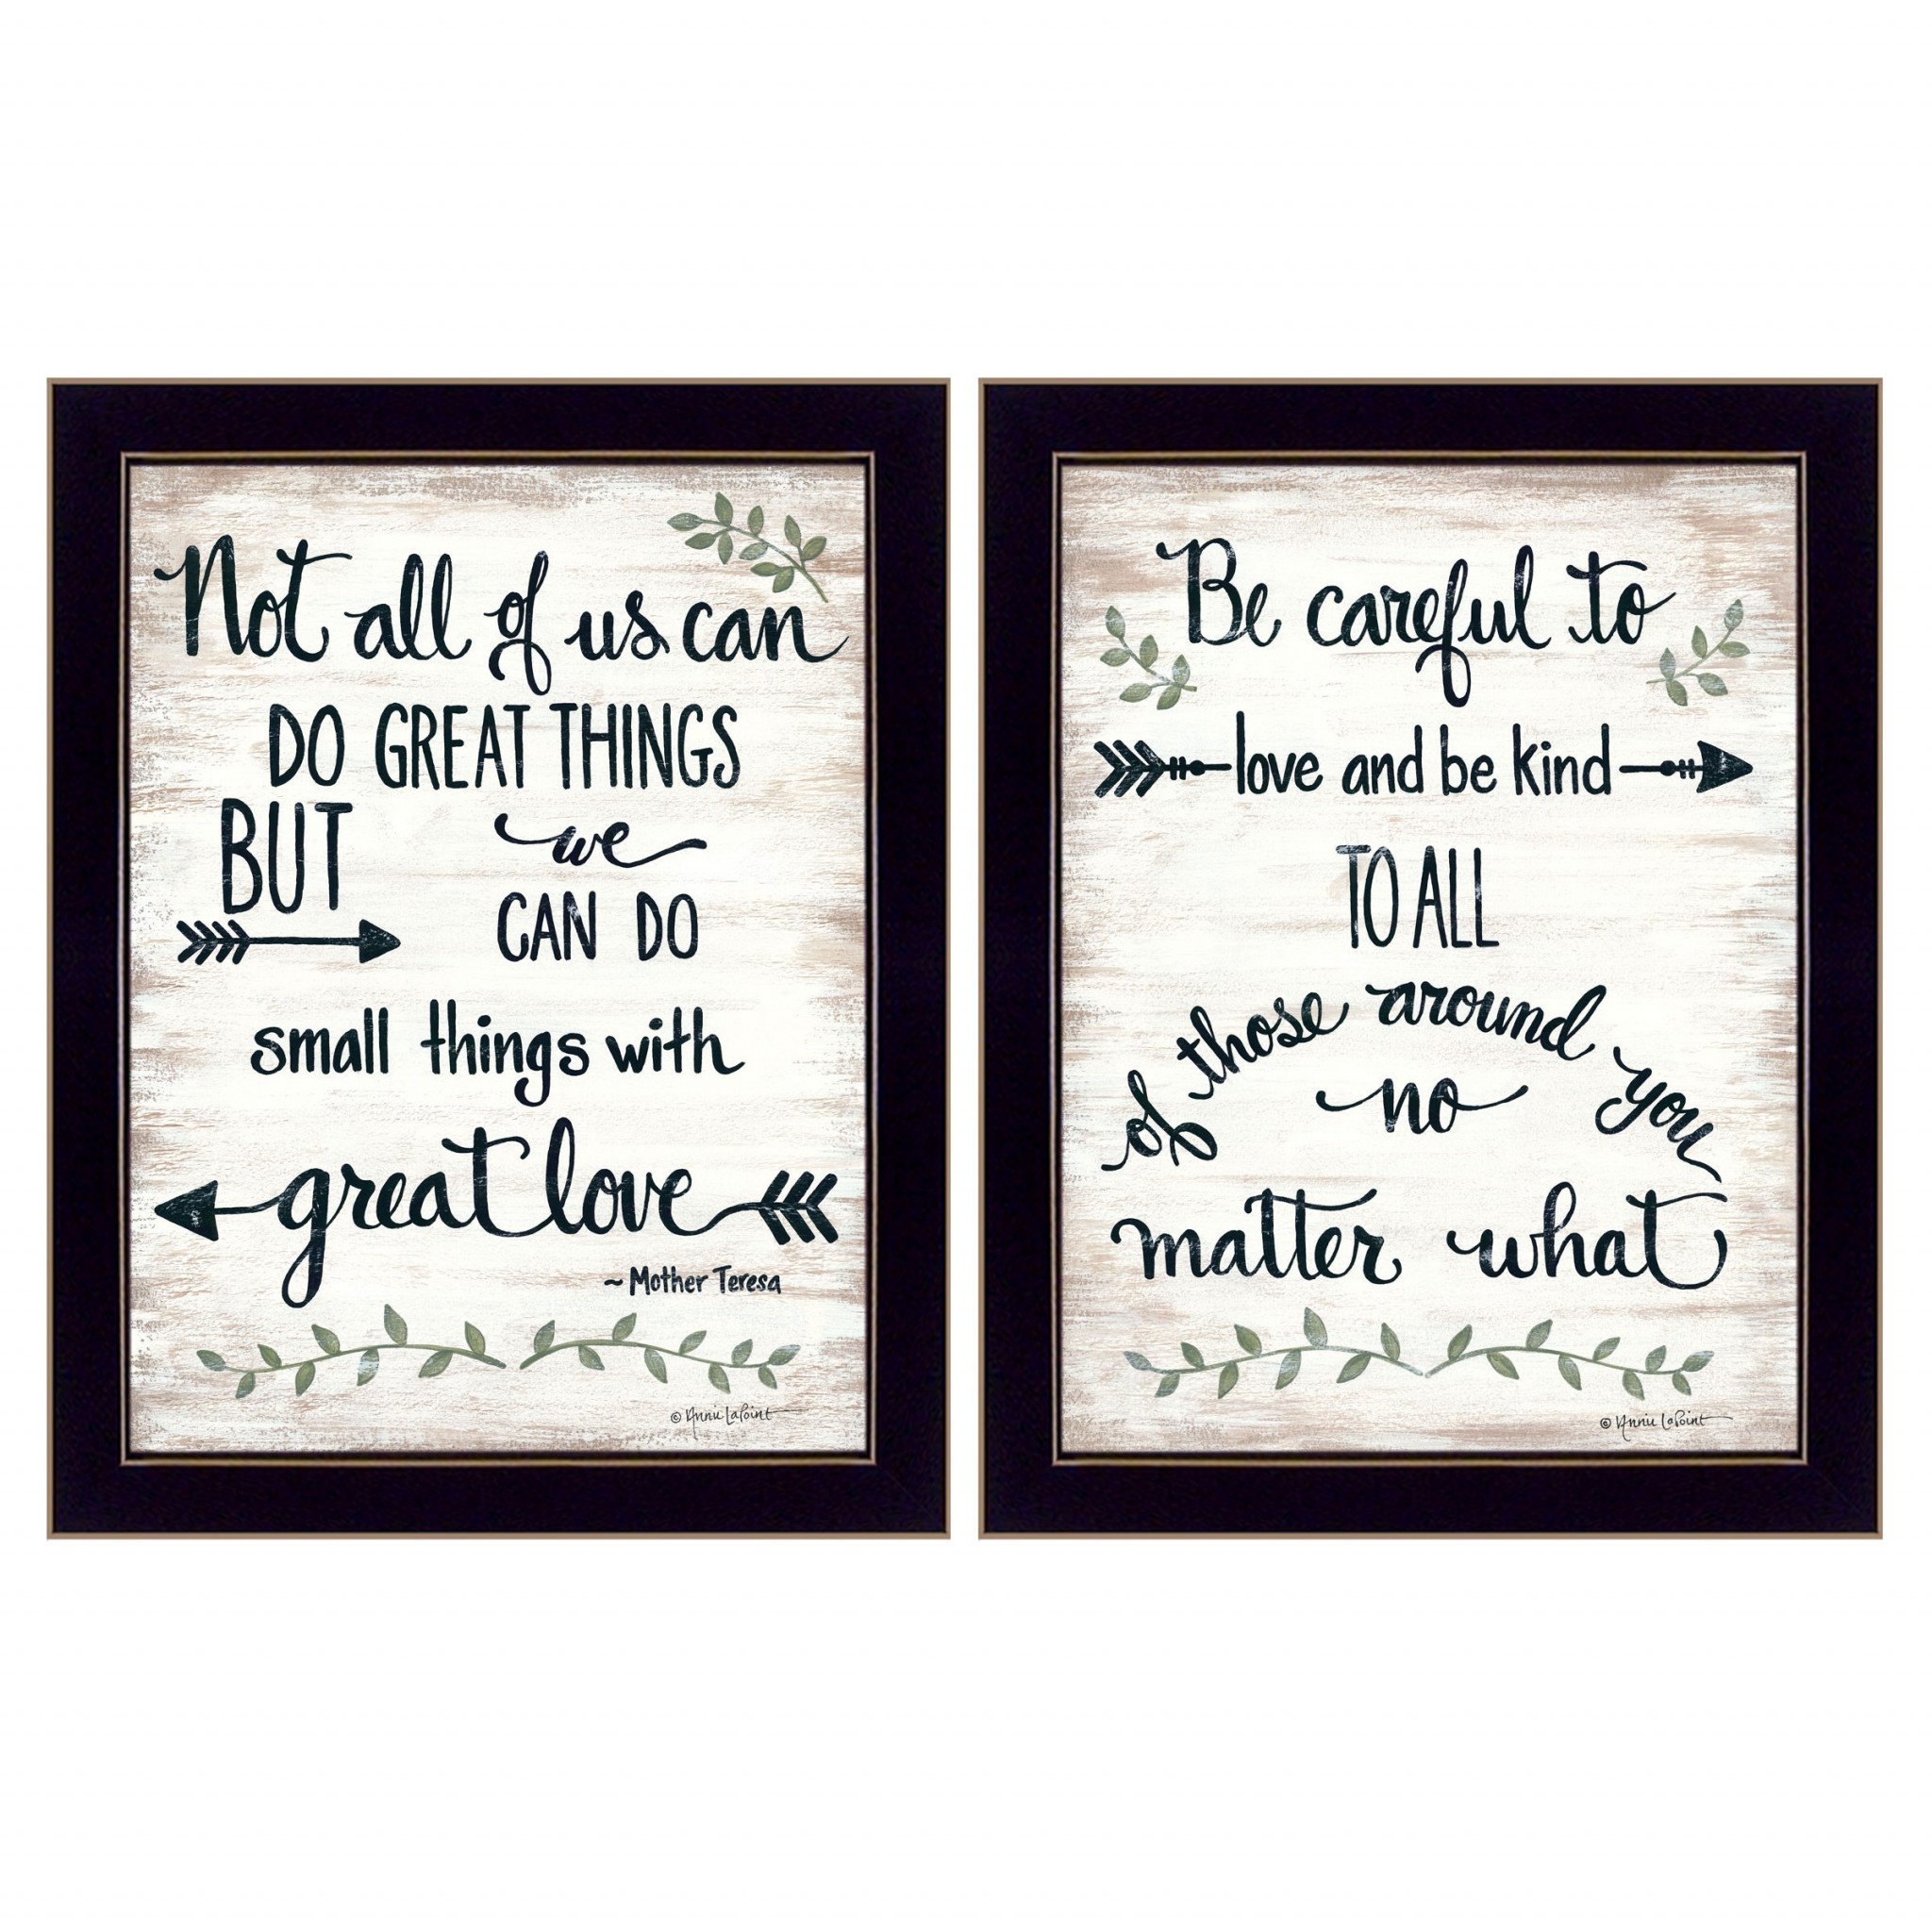 Not all of us can
DO GREAT THINGS
BUT we
CAN DO
small things with
great love
~Mother Teresa
© Annie LaPoint
Be careful to
love and be kind
TO ALL
of those around you
no
matter what
© Annie LaPoint